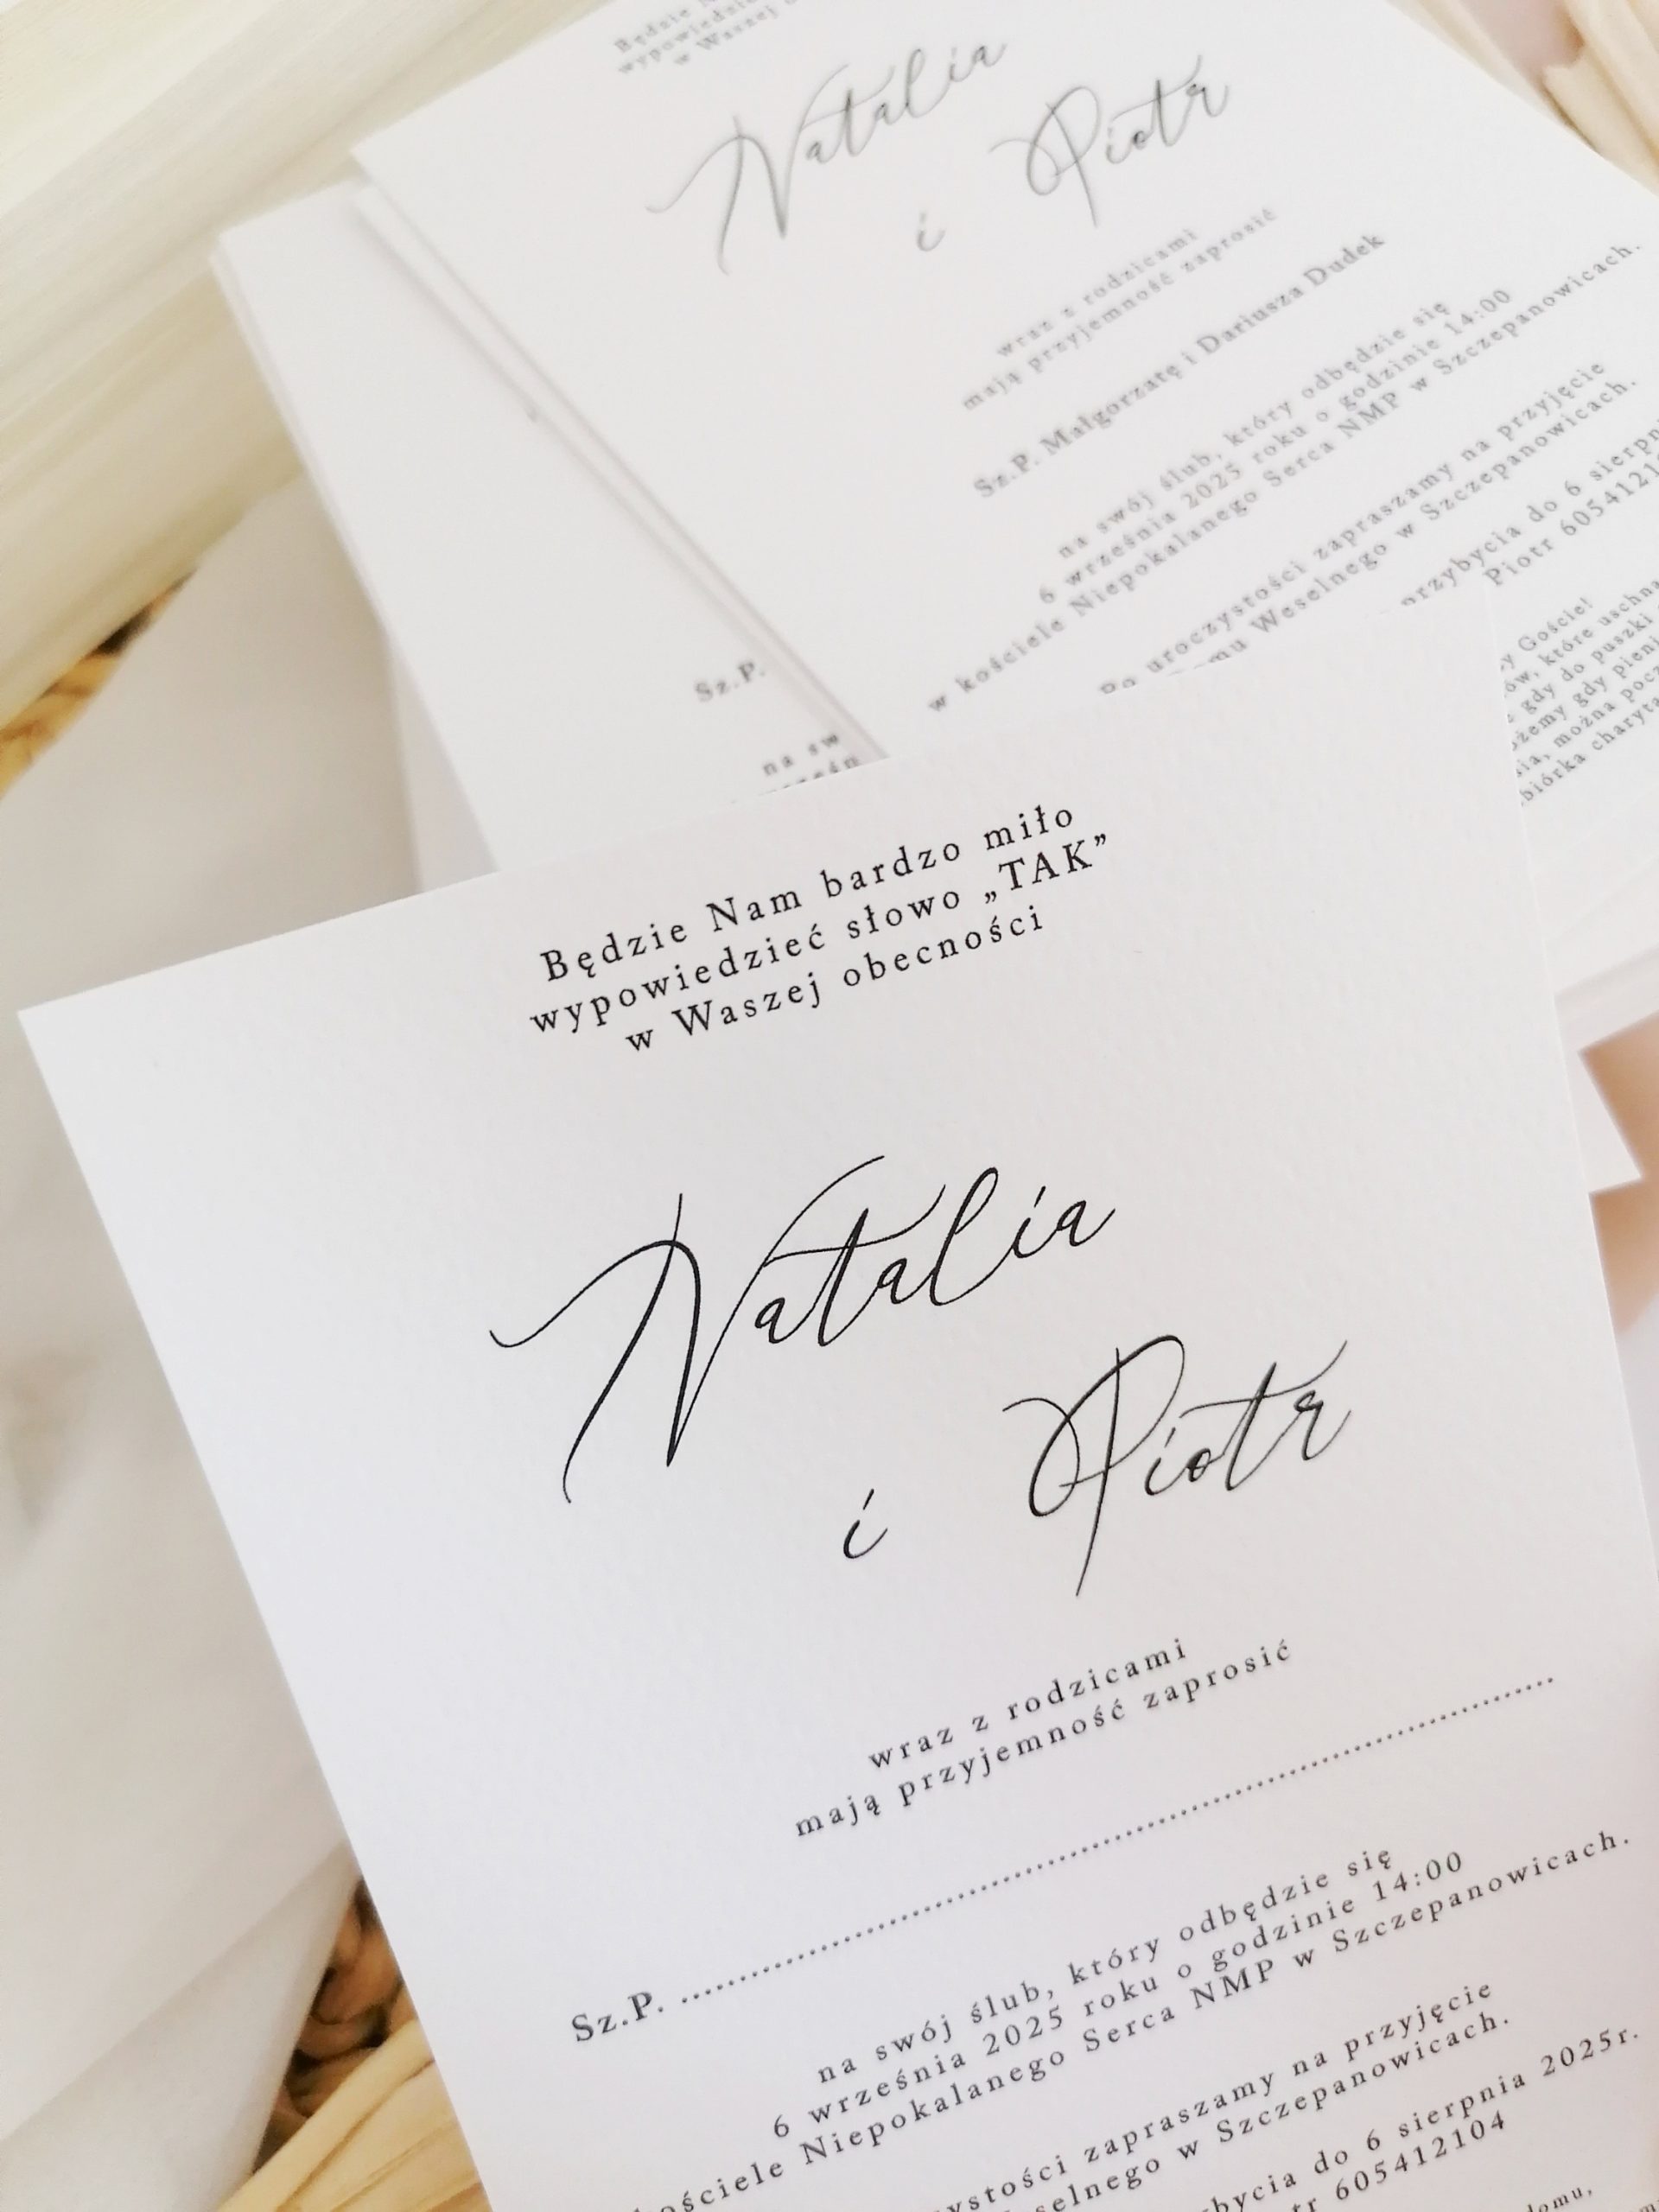 Będzie N
wypowiedzieć
w Waszej
Natalia
i Piotr
wraz z rodzicami
mają przyjemność zaprosić
Sz.P. Małgorzatę i Dariusza Dudek
na swój ślub, który odbędzie się
6 września 2025 roku o godzinie 14:00
w kościele Niepokalanego Serca NMP w Szczepanowicach.
Po uroczystości zapraszamy na przyjęcie
mu Weselnego w Szczepanowicach.
przybycia do 6 sierpni
Piotr 6054121
y Goście!
ów, które uschn
gdy do puszki
żemy gdy pieni
ia, można pocz
biórka charyta
Sz.P.
na sw
Będzie Nam bardzo miło
wypowiedzieć słowo „TAK”
w Waszej obecności
Natalia
i Piotr
wraz z rodzicami
mają przyjemność zaprosić
Sz.P. ........................................................
na swój ślub, który odbędzie się
6 września 2025 roku o godzinie 14:00
ościele Niepokalanego Serca NMP w Szczepanowicach.
ystości zapraszamy na przyjęcie
selnego w Szczepanowicach.
bycia do 6 sierpnia 2025r.
tr 605412104
domu,